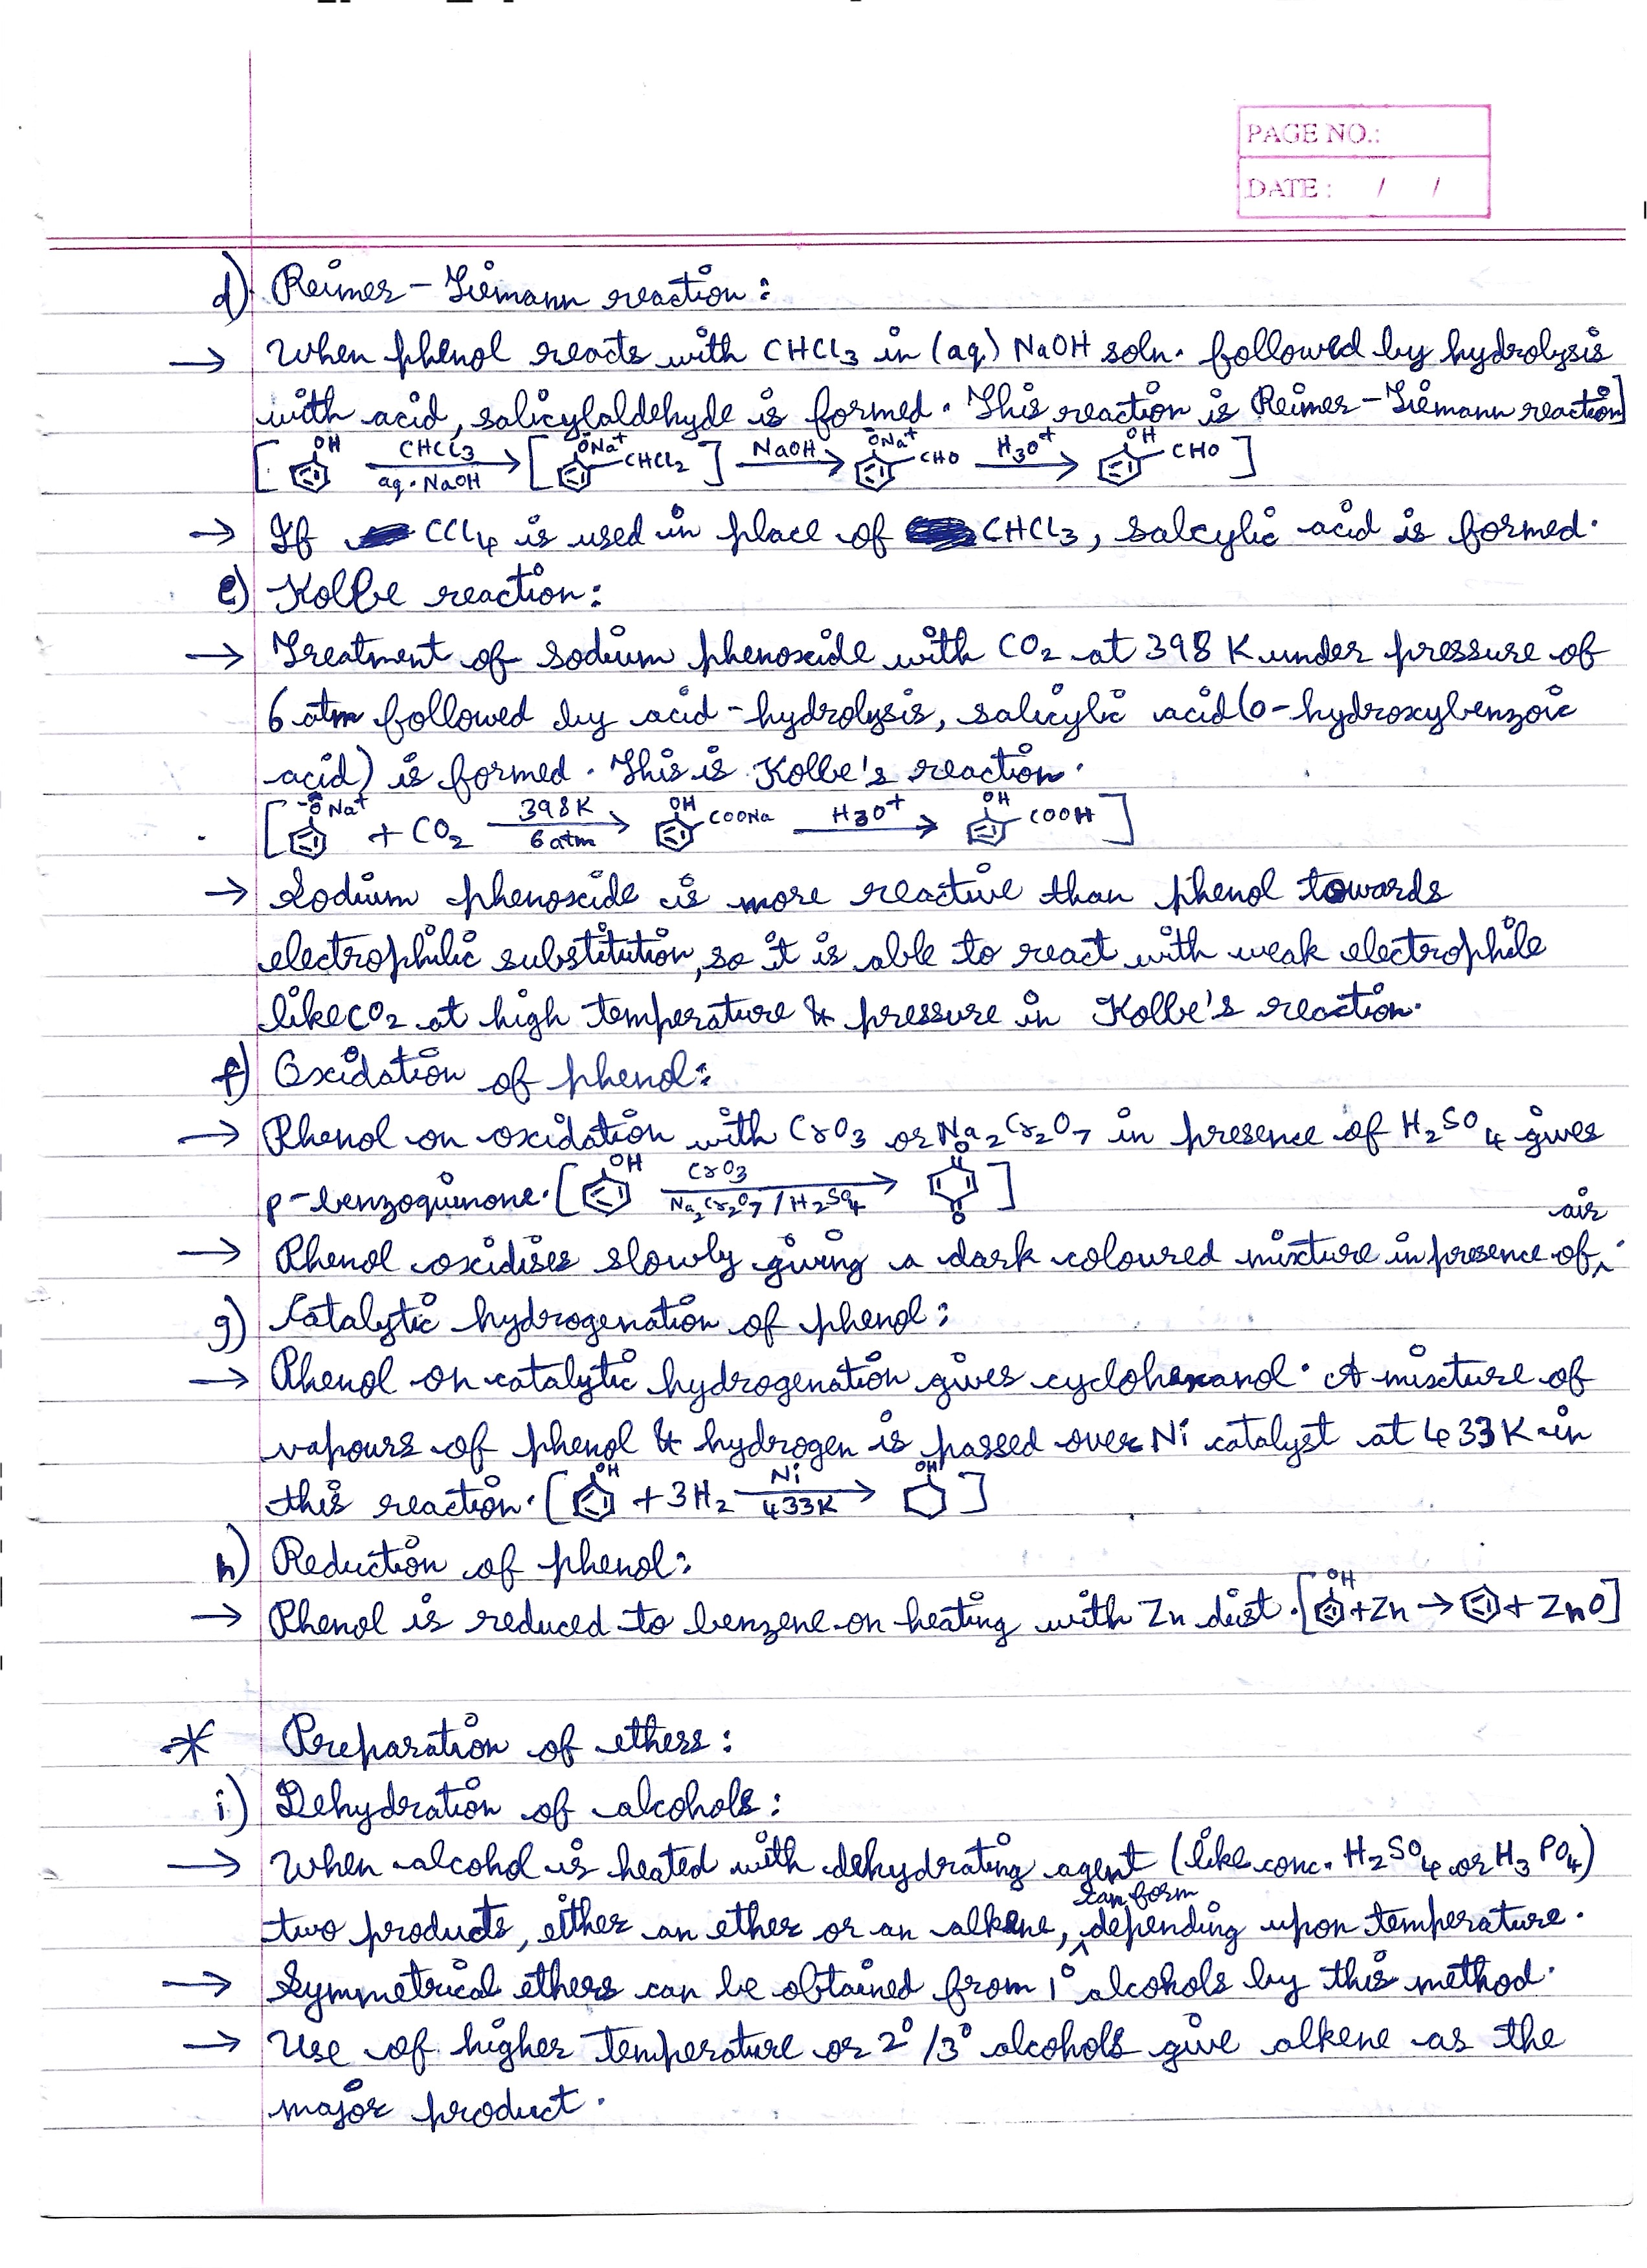 PAGE NO.:
DATE : / /
d) Reimer - Tiemann reaction :
→ When phenol reacts with CHCl3 in (aq) NaOH soln. followed by hydrolysis
with acid, salicylaldehyde is formed. This reaction is Reimer-Tiemann reaction]
[ OH CHCl3 aq. NaOH → [ ŌNa+ CHCl2 ] NaOH → ŌNa+ CHO H3O+ → OH CHO ]
→ If CCl4 is used in place of CHCl3, salcylic acid is formed.
e) Kolbe reaction :
→ Treatment of sodium phenoxide with CO2 at 398 K under pressure of
6 atm followed by acid-hydrolysis, salicylic acid (o-hydroxybenzoic
acid) is formed. This is Kolbe's reaction.
[ -O Na+ + CO2 398K 6 atm → OH COONa H3O+ → OH COOH ]
→ Sodium phenoxide is more reactive than phenol towards
electrophilic substitution, so it is able to react with weak electrophile
like CO2 at high temperature & pressure in Kolbe's reaction.
f) Oxidation of phenol :
→ Phenol on oxidation with CrO3 or Na2Cr2O7 in presence of H2SO4 gives
p-benzoquinone. [ OH CrO3 Na2Cr2O7 / H2SO4 → O O ]
→ Phenol oxidises slowly giving a dark coloured mixture in presence of air.
g) Catalytic hydrogenation of phenol :
→ Phenol on catalytic hydrogenation gives cyclohexanol. A mixture of
vapours of phenol & hydrogen is passed over Ni catalyst at 433K in
this reaction. [ OH + 3H2 Ni 433K → OH ]
h) Reduction of phenol :
→ Phenol is reduced to benzene on heating with Zn dust. [ OH + Zn → + ZnO ]
* Preparation of ethers :
i) Dehydration of alcohols :
→ When alcohol is heated with dehydrating agent (like conc. H2SO4 or H3PO4)
two products, either an ether or an alkene, can form depending upon temperature.
→ Symmetrical ethers can be obtained from 1° alcohols by this method.
→ Use of higher temperature or 2°/3° alcohols give alkene as the
major product.